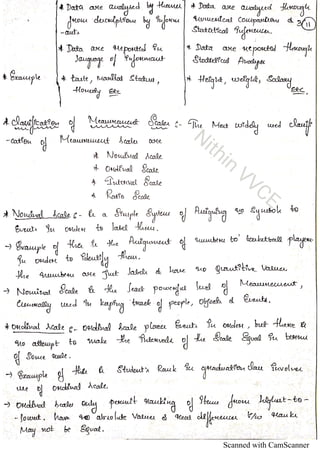 * Data are analysed by themes
from descriptions by inform
-ants
* Data are analysed through
numerical comparisions &
Statistical Inferences.
11
* Data are reported in
language of Informant
* Data are reported through
Statistical Analysis
* Example
* taste, Marital Status,
Honesty Etc
* Height, weight, Salary
Etc.
* Classification of Measurement Scales :- The Most widely used classifi
-cation of Measurement Scales are
* Nominal Scale
* Ordinal Scale
* Interval Scale
* Ratio Scale
* Nominal Scale :- Is a Simple System of Assigning no Symbols to
Events In order to label them.
→ Example of this is the Assignment of numbers to basketball players
In order to Identify them.
the numbers are Just labels & have no quantitive Values
→ Nominal Scale is the least powerful level of Measurement,
Commonly used in keeping track of people, objects & Events.
* Ordinal Scale :- Ordinal Scale places Events In order, but there is
no attempt to make the Intervals of the Scale Equal In terms
of Some rule.
→ Example of this is Student's Rank in graduation class Involves
use of ordinal Scale.
→ Ordinal Scales only permit Ranking of Items from highest-to-
-lowest, have no absolute Values & Real differences b/w Ranks
May not be Equal.
Nithin VVCE
Scanned with CamScanner